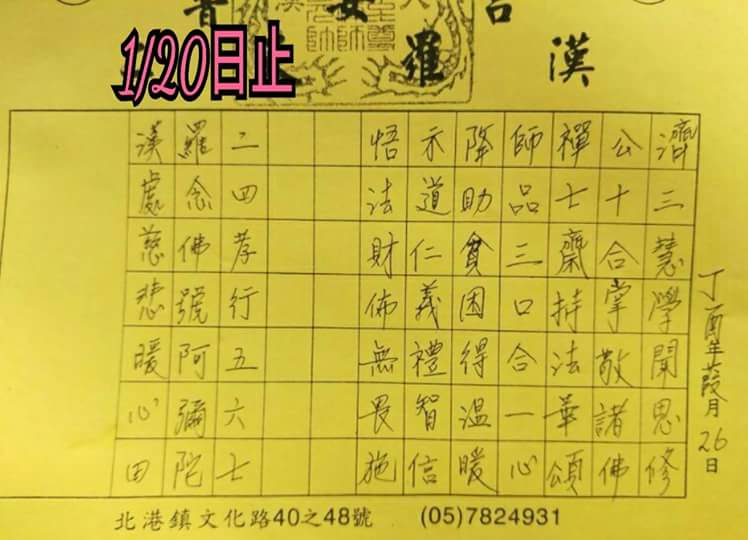 1/20日止
漢 羅
丁酉年葭月26日
濟三慧學聞思修
公十合掌敬諸佛
禪七齋持法華頌
師品三口合一心
降助貧困得溫暖
示道仁義禮智信
悟法財佈無畏施
二四孝行五六七
羅念佛號阿彌陀
漢處慈悲暖心田
北港鎮文化路40之48號 (05)7824931